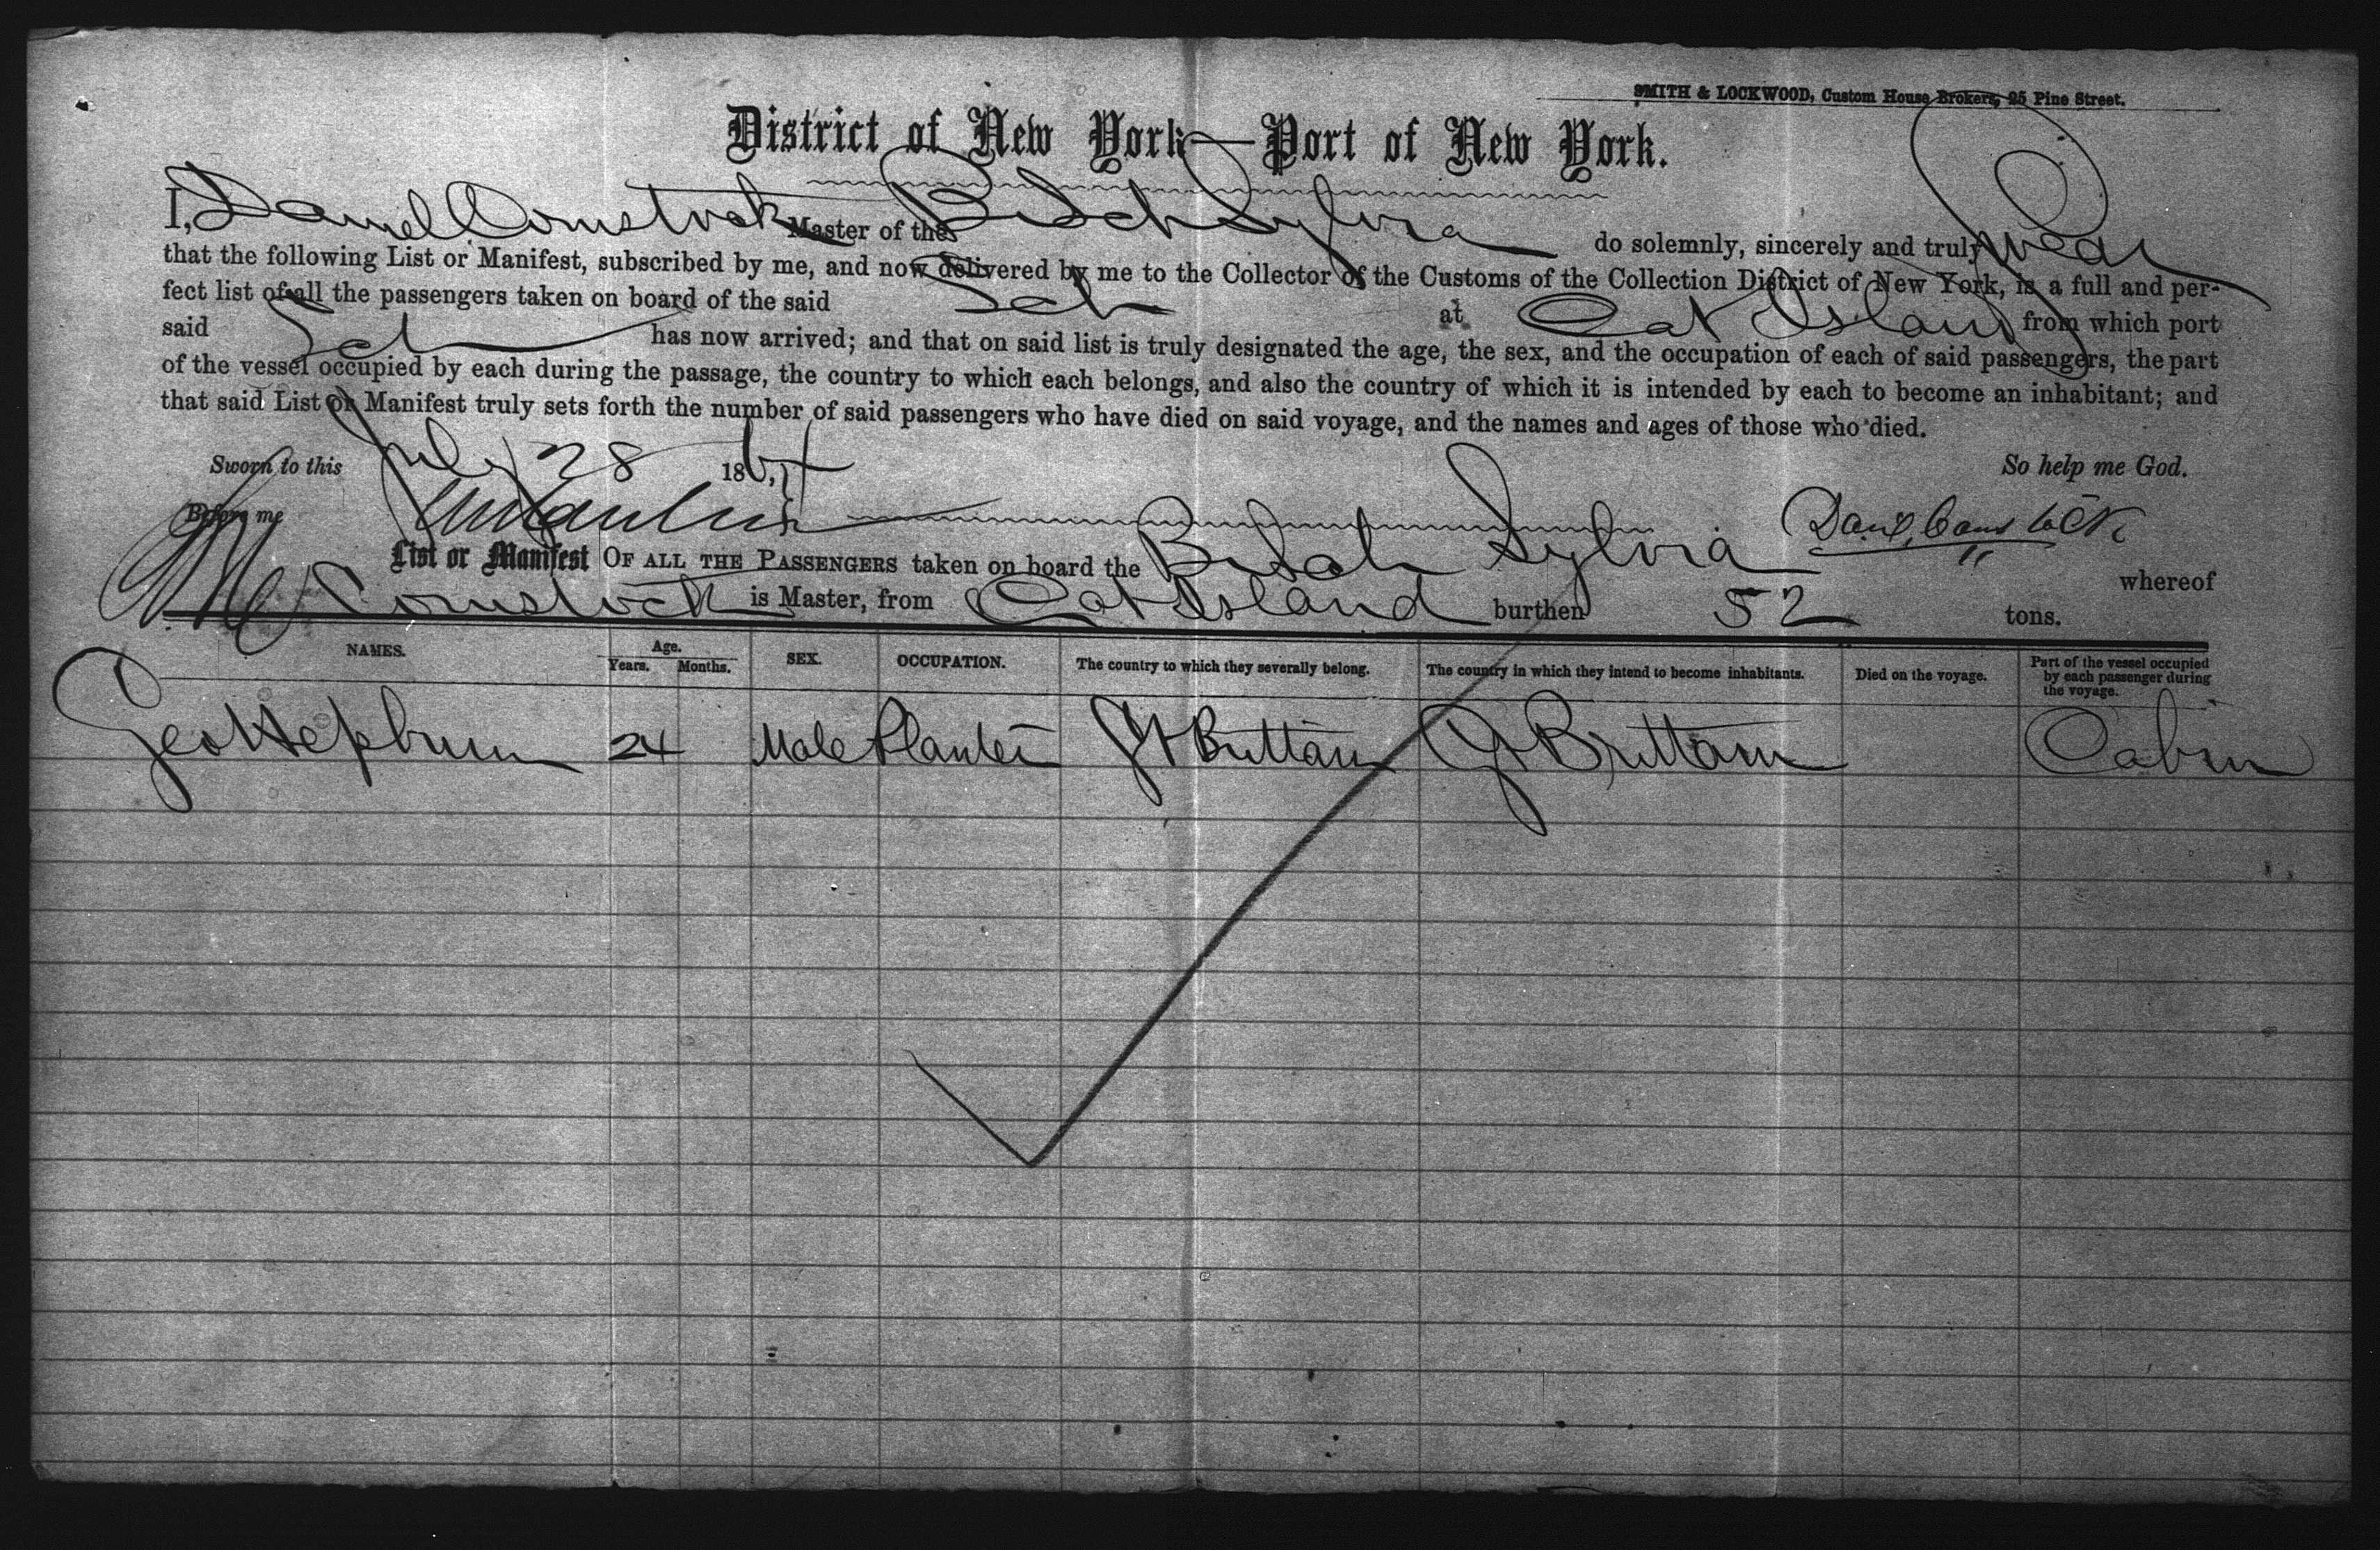 SMITH & LOCKWOOD, Custom House Brokers, 25 Pine Street.
District of New York—Port of New York.
I, Daniel Comstock Master of the Br Sch Sylvia do solemnly, sincerely and truly swear
that the following List or Manifest, subscribed by me, and now delivered by me to the Collector of the Customs of the Collection District of New York, is a full and per-
fect list of all the passengers taken on board of the said Sch at Cat Island from which port
said Sch has now arrived; and that on said list is truly designated the age, the sex, and the occupation of each of said passengers, the part
of the vessel occupied by each during the passage, the country to which each belongs, and also the country of which it is intended by each to become an inhabitant; and
that said List or Manifest truly sets forth the number of said passengers who have died on said voyage, and the names and ages of those who died.
Sworn to this July 28 1864 So help me God.
Before me Danl. Comstock
List or Manifest OF ALL THE PASSENGERS taken on board the Br Sch Sylvia whereof
Comstock is Master, from Cat Island burthen 52 tons.
NAMES. Age. Years. Months. SEX. OCCUPATION. The country to which they severally belong. The country in which they intend to become inhabitants. Died on the voyage. Part of the vessel occupied by each passenger during the voyage.
Geo Hepburn 24 Male Planter Gt Brittain Gt Brittain Cabin